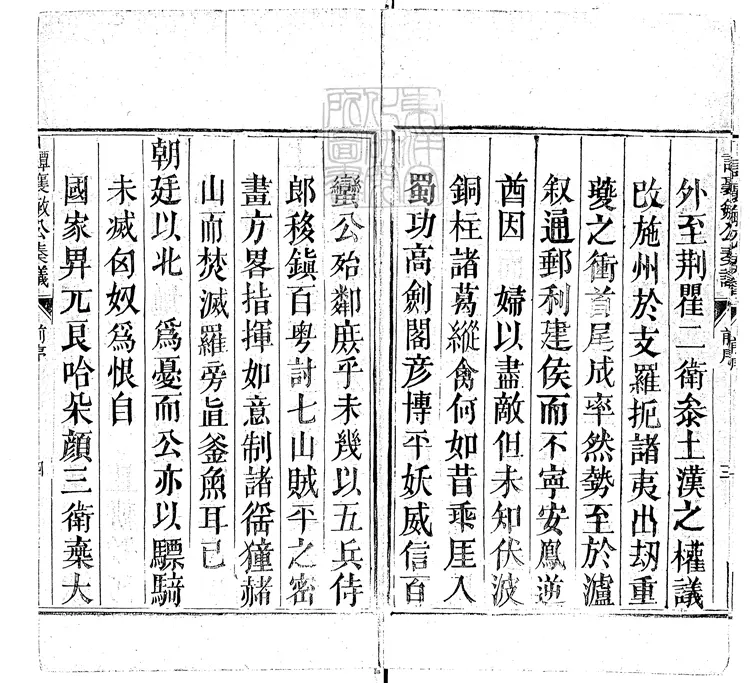 外至荆瞿二衛叅土漢之權議
改施州於支羅扼諸夷出刼重
夔之衝首尾成率然勢至於瀘
叙通郵利建侯而不寧安鳳逆
酋因 婦以盡敵但未知伏波
銅柱諸葛縱禽何如昔乘厓入
蜀功高劍閣彦博平妖威信百
蠻公殆鄰庶乎未幾以五兵侍
郎移鎮百粤討七山賊平之密
畫方畧指揮如意制諸徭獞赭
山而焚滅羅旁直釜魚耳已
朝廷以北 爲憂而公亦以驃騎
未滅匈奴爲恨自
國家畀兀良哈朶顔三衛棄大
譚襄敏公奏議
前序
四
譚襄敏公奏議
前序
三